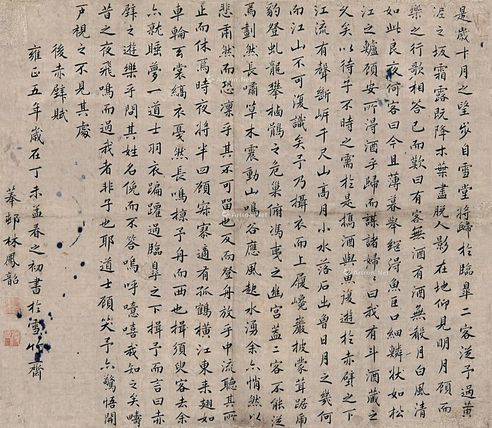 是歲十月之望步自雪堂將歸於臨皋二客從予過黃
泥之坂霜露既降木葉盡脫人影在地仰見明月顧而
樂之行歌相答已而歎曰有客無酒有酒無殽月白風清
如此良夜何客曰今且薄暮舉網得魚巨口細鱗狀如松
江之鱸顧安所得酒乎歸而謀諸婦曰我有斗酒藏之
久矣以待子不時之需於是攜酒與魚復遊於赤壁之下
江流有聲斷岸千尺山高月小水落石出曾日月之幾何
而江山不可復識矣予乃攝衣而上履巉巖披蒙茸踞虎
豹登虬龍攀栖鶻之危巢俯馮夷之幽宮蓋二客不能從
焉劃然長嘯草木震動山鳴谷應風起水湧余亦悄然以
悲肅然而恐凜乎其不可留也反而登舟放乎中流聽其所
止而休焉時夜將半四顧寂寥適有孤鶴橫江東來翅如
車輪玄裳縞衣戛然長鳴掠予舟而西也須臾客去余
亦就睡夢一道士羽衣蹁躚過臨皋之下揖予而言曰赤
壁之遊樂乎問其姓名俛而不答嗚呼噫嘻我知之矣疇
昔之夜飛鳴而過我者非子也耶道士顧笑予亦驚悟開
戶視之不見其處
後赤壁賦
雍正五年歲在丁未孟春之初書於雪竹齋
邨林鳳韶